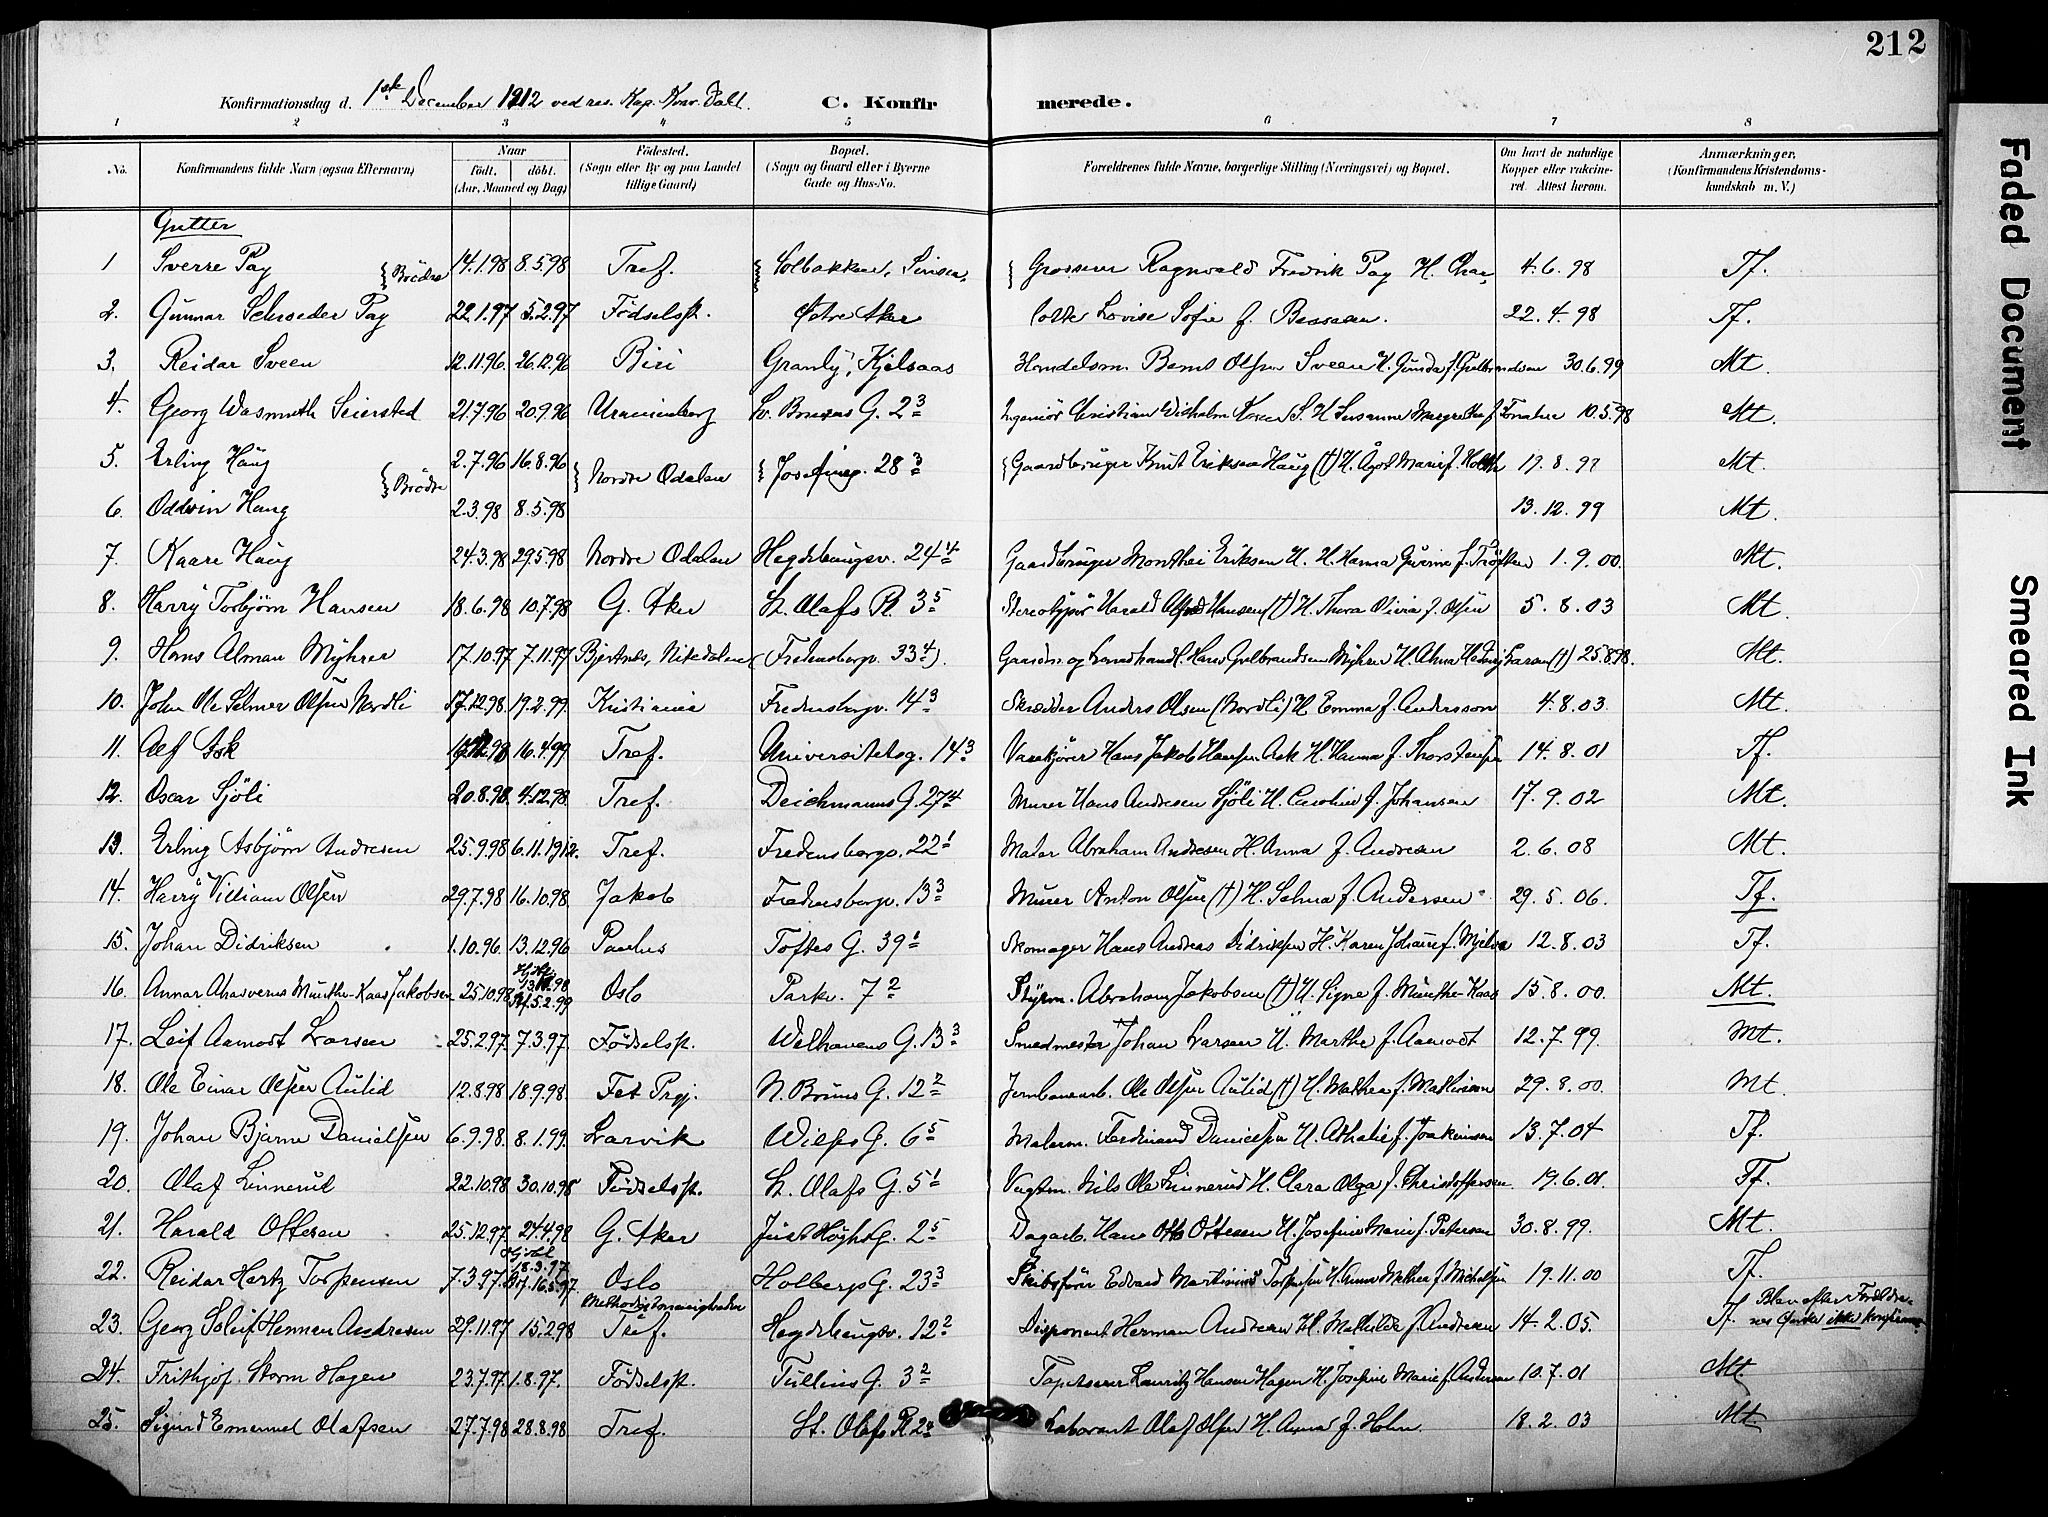 212
Konfirmationsdag d. 1ste December 1912 ved res. Kap.
C. Konfirmerede.
1 2 3 4 5 6 7 8
No. Konfirmandens fulde Navn (ogsaa Efternavn) Naar født. døbt. (Aar, Maaned og Dag) Fødested. (Sogn eller By og paa Landet tillige Gaard) Bopæl. (Sogn og Gaard eller i Byerne Gade og Hus-No. Forældrenes fulde Navne, borgerlige Stilling (Næringsvei) og Bopæl. Om havt de naturlige Kopper eller vaccineret. Attest herom. Anmærkninger. (Konfirmandens Kristendomskundskab m. V.)
Gutter
1 Sverre Pay } Brödre 14.1.98 8.5.98 Tref. { Solbakken, Sinsen, { Grosserer Ragnvald Fredrik Pay H. Char- 4.6.98 Tf.
2. Gunnar Schroeder Pay 22.1.97 5.2.97 Födselsst. Østre Aker lotte Lovise Sofie f. Bessesen. 22.4.98 Tf.
3. Reidar Sveen 12.11.96 26.12.96 Biri Granly, Kjelsaas Handelsm. Bernt Olsen Sveen H. Gunda f. Gulbrandsen 30.6.99 Mt.
4. Georg Wasmuth Seiersted 21.7.96 20.9.96 Uranienborg Sv. Bruns G. 2 3 Ingeniör Christian Wilhelm Koren S. H. Susanne Margrethe f. Fonahn 10.5.98 Mt.
5. Erling Haug } Brödre 2.7.96 16.8.96 { Nordre Odalen { Josefineg. 28 3 { Gaardbruger Knut Eriksen Haug (†) H. Marie f. Holth 19.8.97 Mt.
6. Oddvin Haug 2.3.98 8.5.98 13.12.99 Mt.
7. Kaare Haug 24.3.98 29.5.98 Nordre Odalen Hegdehaugsv. 24 4 Gaardbruger Eriksen H. H. Hanna f. 1.9.00. Mt.
8. Harry Torbjörn Hansen 18.6.98 10.7.98 G. Aker St. Olafs Pl. 3 5 Stereotypör Harald Alfred Hansen (†) H. Thora Olivia f. Olsen 5.8.03 Mt.
9. Hans Alman Myhrer 17.10.97 7.11.97 Bjertnes, Nitedalen (Fredensborgv. 33 4). Gaardm. og Landhandl. Hans Gulbrandsen Myhrer H. Alma Hedvig Larsen (†) 25.8.98. Mt.
10. John Ole Selmer Olsen Nordli 17.12.98 19.2.99. Kristiania Fredensborgv. 14 3 Skrædder Anders Olsen (Nordli) H. Emma f. Andersson 4.8.03. Mt.
11. Alf Ask 16.4.99 Tref. Universitetsg. 14 3 Varekjörer Hans Jakob Hansen Ask H. Hanna f. Thorstensen 14.8.01 Tf.
12. Oscar Sjöli 20.8.98 4.12.98 Tref. Deichmanns G. 27 4 Murer Hans Andresen Sjöli H. Caroline f. Johansen 17.9.02 Mt.
13. Erling Asbjörn Andresen 25.9.98 6.11.1912. Tref. Fredensborgv. 22 1 Maler Abraham Andresen H. Anna f. Andresen 2.6.08 Mt.
14. Harry Villiam Olsen 29.7.98 16.10.98 Jakob Fredensborgv. 13 3 Murer Anton Olsen (†) H. Selma f. Andersen 29.5.06. Tf.
15. Johan Didriksen 1.10.96 13.12.96 Paulus Toftes G. 39 1 Skomager Hans Andreas Didriksen H. Karen f. 12.8.03 Tf.
16. Annar Ahasverus Munthe-Kaas Jakobsen 25.10.98 Oslo Parkv. 7 2 Styrm. Abraham Jakobsen (†) H. Signe f. Munthe Kaas 15.8.00. Mt.
17. Leif Aamodt Larsen 25.2.97 7.3.97. Födselsst. Welhavens G. 13 3 Smedmester Johan Larsen H. Marthe f. Aamodt 12.7.99. Mt.
18. Ole Einar Olsen Aulid 12.8.98 18.9.98. Fet Prgj. N. Bruns G. 12 2 Jernbanearb. Ole Olsen Aulid (†) H. Mathea f. Mathisen 29.8.00. Mt.
19. Johan Bjarne Danielsen 6.9.98. 8.1.99. Larvik Wilses G. 6 5 Malerm. Ferdinand Danielsen H. Athalie f. Joakimsen 13.7.04 Tf.
20. Olaf Linnerud 22.10.98 30.10.98 Födselsst. St. Olafs G. 5 1 Vagtm. Nils Ole Linnerud H. Clara Olga f. Christoffersen 19.6.01. Tf.
21. Harald Ottesen 25.12.97. 24.4.98 G. Aker Just Höghs G. 2 5 Dagarb. Hans Otto Ottesen H. Josefine Marie f. Petersen 30.8.99. Mt.
22. Reidar Hertz Torfensen 7.3.97. 18.3.97 16.5.97. Oslo Holbergs G. 23 3 Skibsförer Edvard Martinius H. Anna Mathea f. Michelsen 19.11.00 Tf.
23. Georg Herman Andresen 29.11.97 15.2.98 Methodistmenigheden Tref. Hegdehaugsv. 12 2 Disponent Herman Andresen H. Mathilde f. Andresen 14.2.05. Tf. Blev efter Forældrenes Önske ikke konfirmeret
24. Frithjof Storm Hagen 23.7.97 1.8.97. Födselsst. Tullins G. 3 2 Tapetserer Lauritz Hansen Hagen H. Josefine Marie f. Andersen 10.7.01 Mt.
25. Sigurd Emanuel Olafsen 27.7.98 28.8.98 Tref. St. Olafs Pl. 2 4 Laborant Olaf Olsen H. Anna f. Holm. 18.2.03 Mt.
Faded Document
Smeared Ink